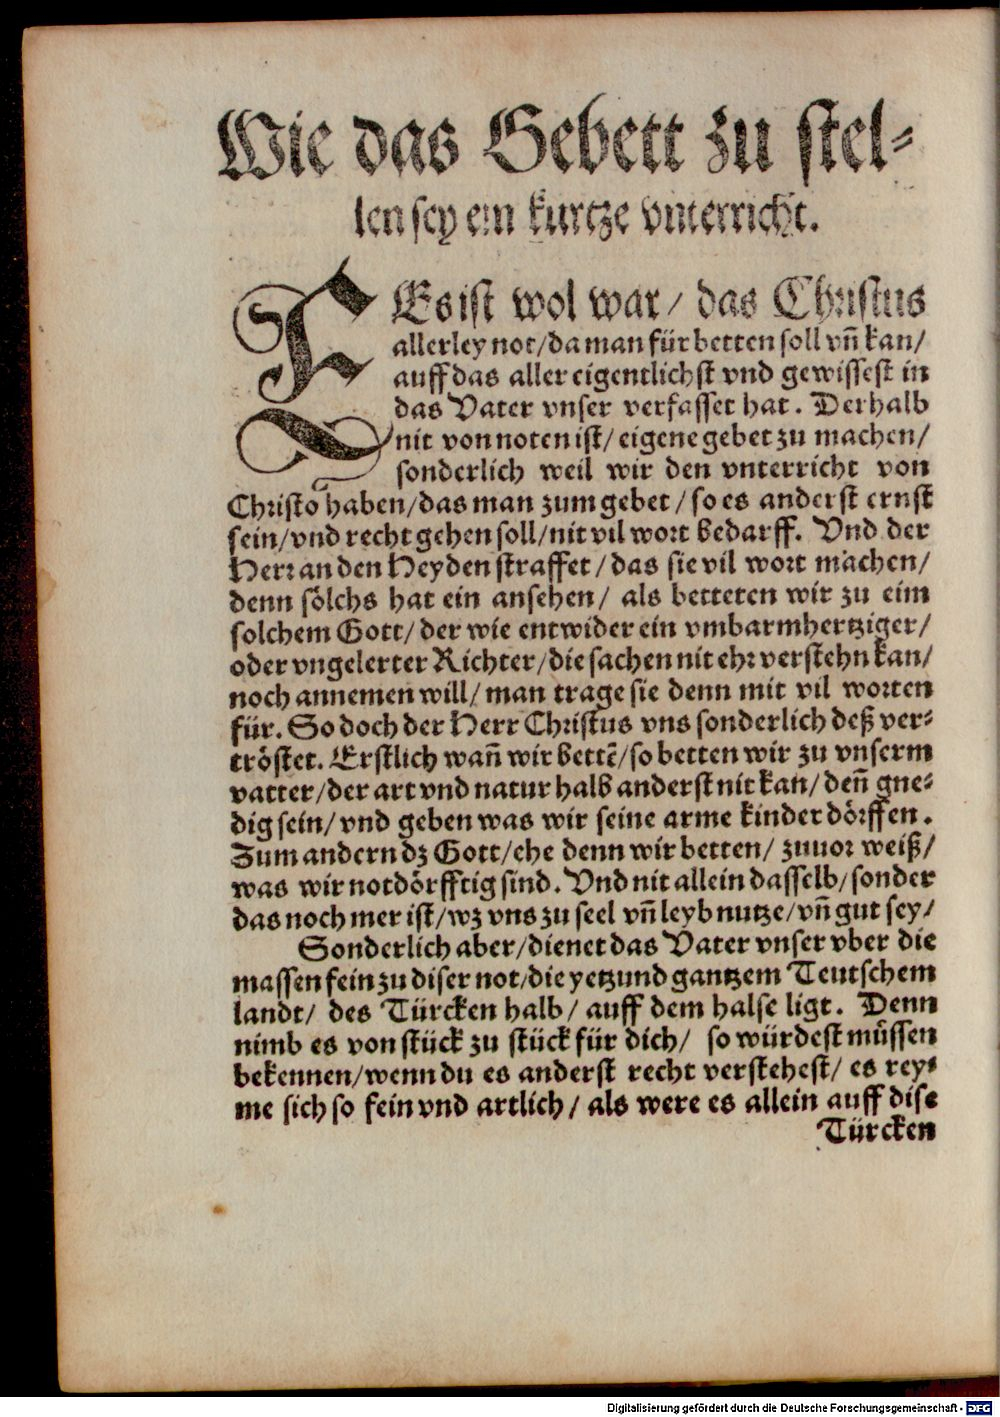 Wie das Gebett zu stel-
len sey ein kurtze vnterricht.
ES ist wol war / das Christus
allerley not / da man für betten soll vñ kan /
auff das aller eigentlichst vnd gewissest in
das Vater vnser verfasset hat . Derhalb
nit von noten ist / eigene gebet zu machen /
sonderlich weil wir den vnterricht von
Christo haben / das man zum gebet / so es anderst ernst
sein / vnd recht gehen soll / nit vil wort bedarff. Vnd der
Herr an den Heyden straffet / das sie vil wort machen /
denn sölchs hat ein ansehen / als betteten wir zu eim
solchem Gott / der wie entwider ein vmbarmhertziger /
oder vngelerter Richter / die sachen nit ehr verstehn kan /
noch annemen will / man trage sie denn mit vil worten
für. So doch der Herr Christus vns sonderlich deß ver-
tröstet. Erstlich wañ wir bettẽ / so betten wir zu vnserm
vatter / der art vnd natur halb anderst nit kan / deñ gne-
dig sein / vnd geben was wir seine arme kinder dörffen .
Zum andern dz Gott / ehe denn wir betten / zuuor weiß /
was wir notdörfftig sind. Vnd nit allein dasselb / sonder
das noch mer ist / wz vns zu seel vñ leyb nutze / vñ gut sey /
Sonderlich aber / dienet das Vater vnser vber die
massen fein zu diser not / die yetzund gantzem Teutschem
landt / des Türcken halb / auff dem halse ligt . Denn
nimb es von stück zu stück für dich / so würdest müssen
bekennen / wenn du es anderst recht verstehest / es rey-
me sich so fein vnd artlich / als were es allein auff dise
Türcken
Digitalisierung gefördert durch die Deutsche Forschungsgemeinschaft - DFG